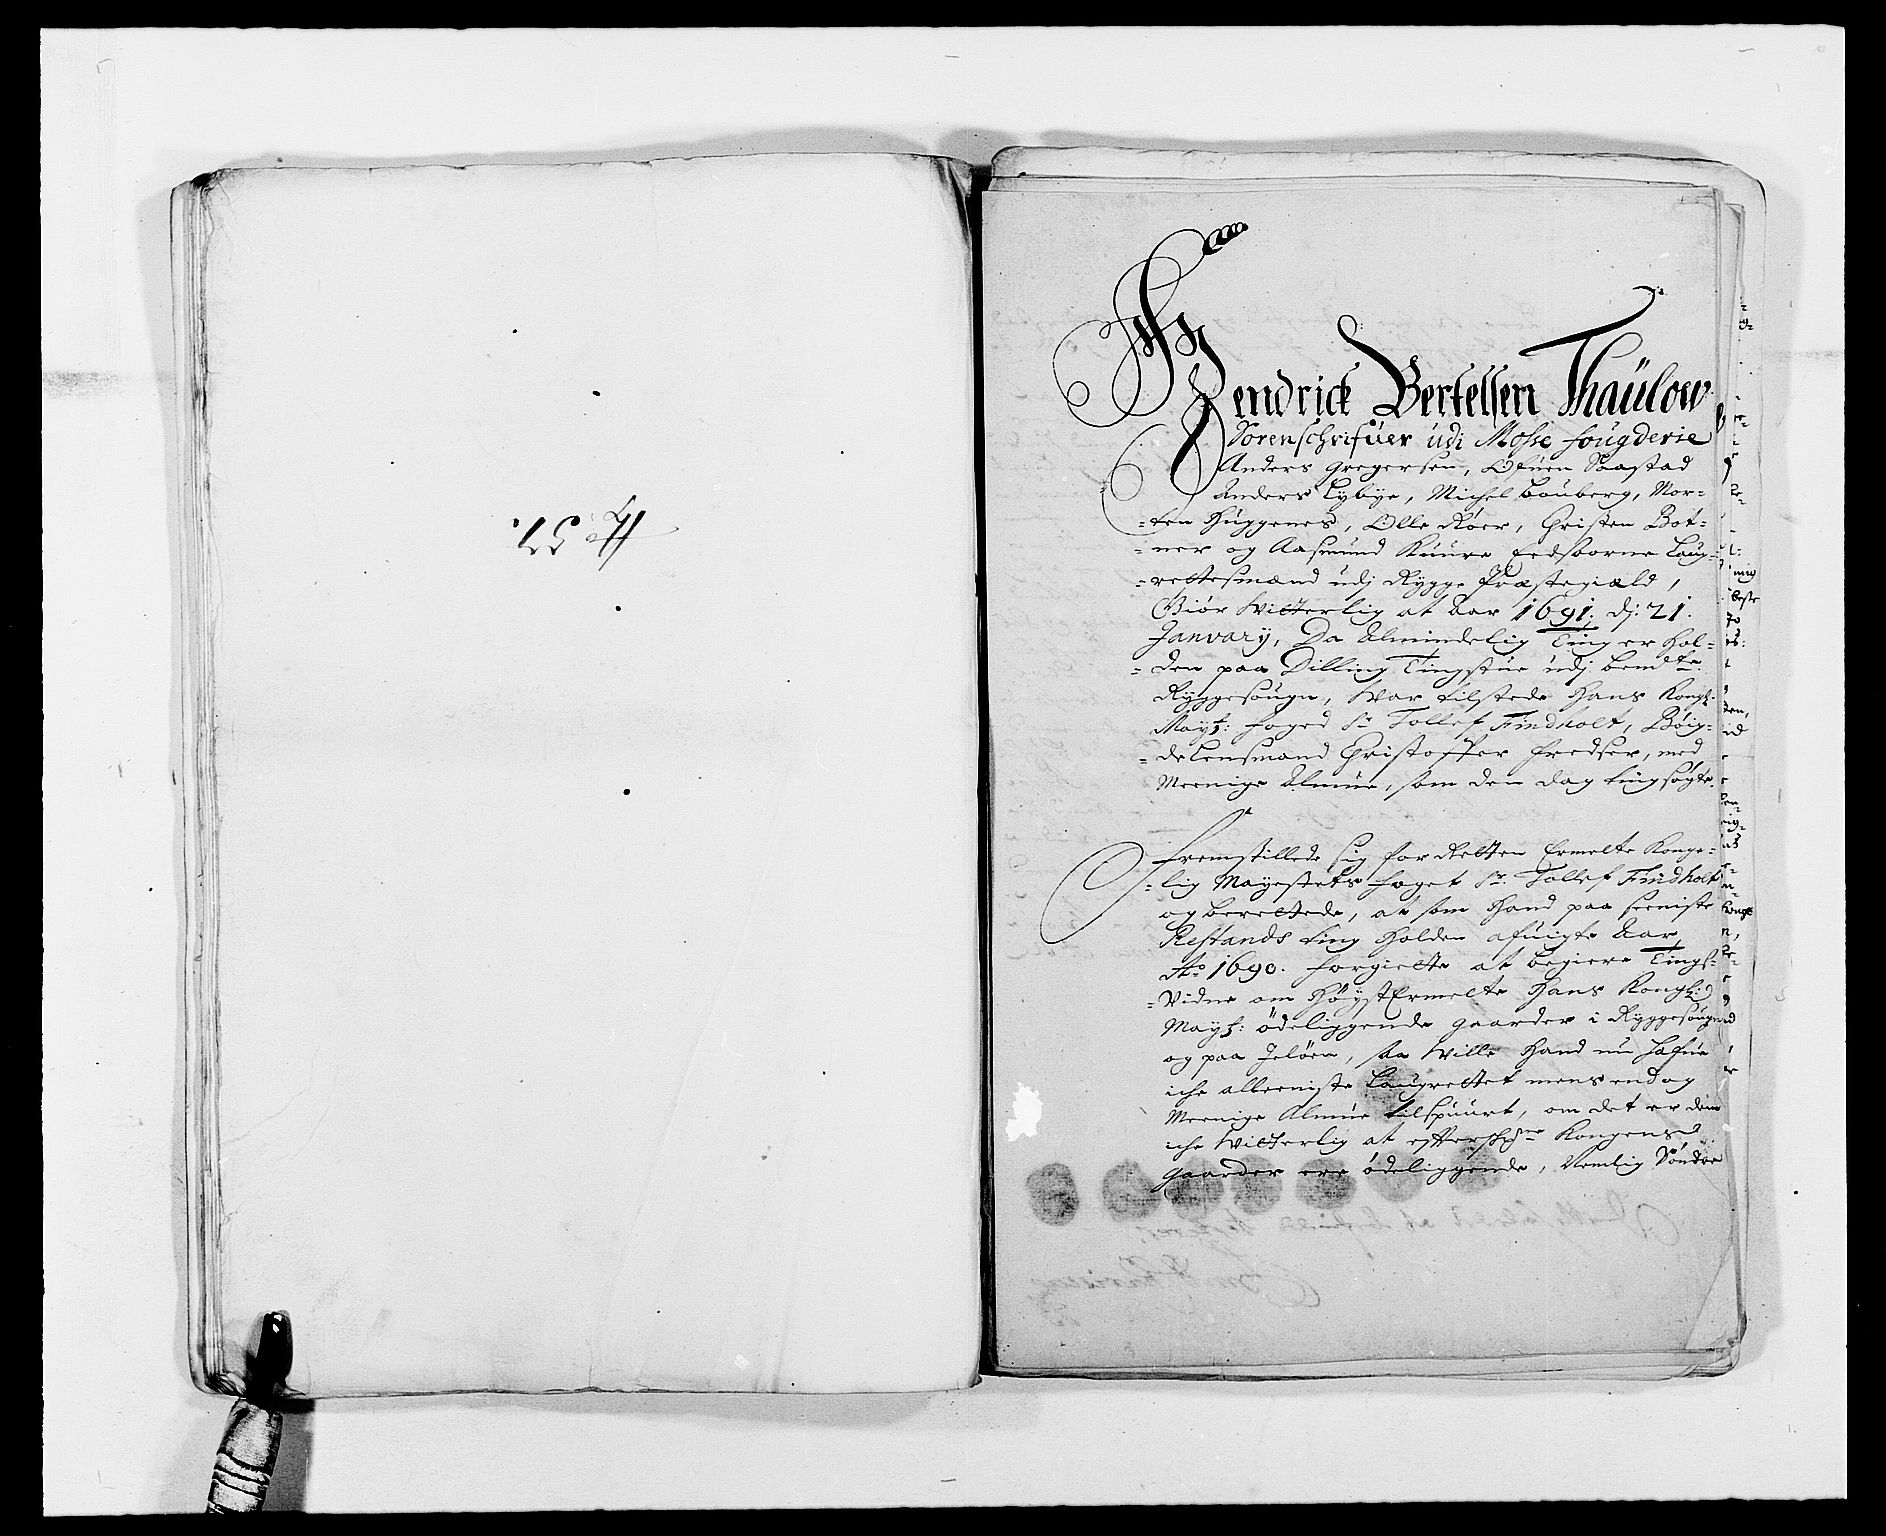 No 37.
Hendrick Bertelsen Thaülow
Sorenschrifüer udi Mosse fougderie
Anders Gregersen, Ofuen Saastad
Anders Lybye, Michel Bouberg, Mor-
-ten Huggenes, Olle Røer, Christen Bot-
-ner og Aasmund Kuure Eedsoorne Laug-
-rettesmænd udj Rygge Præstegiæld,
Giør Witterlig at Aar 1691, dj: 21.
Januarij, Da Almindelig Ting er Hol-
-den paa Dilling Tingstue udj bemdte
Ryggesougn, War tilstede Hans Kongl:
Mayts: foged Sr Tollef Findholt, Böig-
-de Lensmand Christoffer Fredser, med
Meenige Almue, som den dag tingsøgte.
Fremstillede sig for Retten Ermelte Konge-
-lig Mayestets foget Sr. Tollef Findholt
og berettede, at som Hand paa seeniste
Restands ting Holden afuigte Aar,
Ao 1690. forgiette at begiere Tings-
-Vidne om HøystErmelte Hans Kongl:
Mayts: ödeliggende gaarder i Ryggesougn
og paa Jeløen, saa Wille Hand nu hafue
iche alleeniste Laugrettet mens endog
Meenige Almue tilspuurt, om det er dem
iche Witterlig at effterschrne Kongens
gaarder ere ödeliggende, Nemlig Söndre